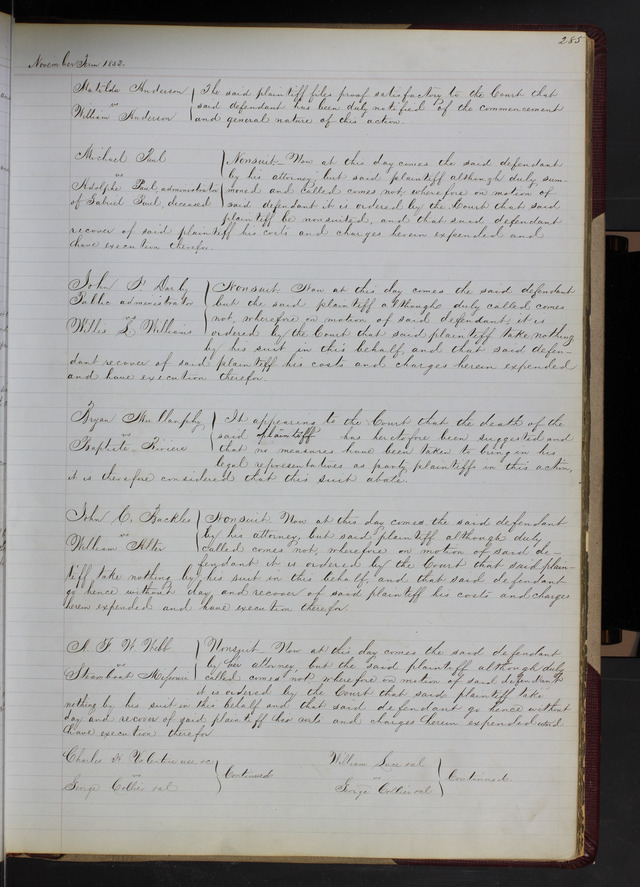 285
November Term 1853.
Matilda Anderson } The said plaintiff files proof satisfactory to the Court that
vs said defendant has been duly notified of the commencement
William Anderson and general nature of this action.
Michael Paul } Nonsuit Now at this day comes the said defendant
vs by his attorney, but said plaintiff although duly sum-
Adolphe Paul, administrator moned and called comes not, wherefore on motion of
of Gabriel Paul, deceased said defendant it is ordered by the Court that said
plaintiff be nonsuited, and that said defendant
recover of said plaintiff his costs and charges herein expended and
have execution therefor.
John F Darby } Nonsuit Now at this day comes the said defendant
Public administrator but the said plaintiff although duly called comes
vs not, wherefore on motion of said defendant, it is
Willis L Williams ordered by the Court that said plaintiff take nothing
by his suit in this behalf, and that said defen-
dant recover of said plaintiff his costs and charges herein expended
and have execution therefor.
Bryan } It appearing to the Court that the death of the
vs said plaintiff has heretofore been suggested and
Baptiste Riviere that no measures have been taken to bring in his
legal representatives as party plaintiff in this action,
it is therefore considered that this suit abate.
John C. } Nonsuit Now at this day comes the said defendant
vs by his attorney, but said plaintiff although duly
William called comes not, wherefore on motion of said de-
fendant it is ordered by the Court that said plain-
tiff take nothing by his suit in this behalf, and that said defendant
go hence without day and recover of said plaintiff his costs and charges
herein expended and have execution therefor.
Webb } Nonsuit Now at this day comes the said defendant
vs by her attorney, but the said plaintiff although duly
Steam boat called comes not, wherefore on motion of said defendant
it is ordered by the Court that said plaintiff take
nothing by his suit in this behalf and that said defendant go hence without
day and recover of said plaintiff her costs and charges herein expended and
have execution therefor
Charles William
vs } Continued vs } Continued
George Collier et al George Collier et al